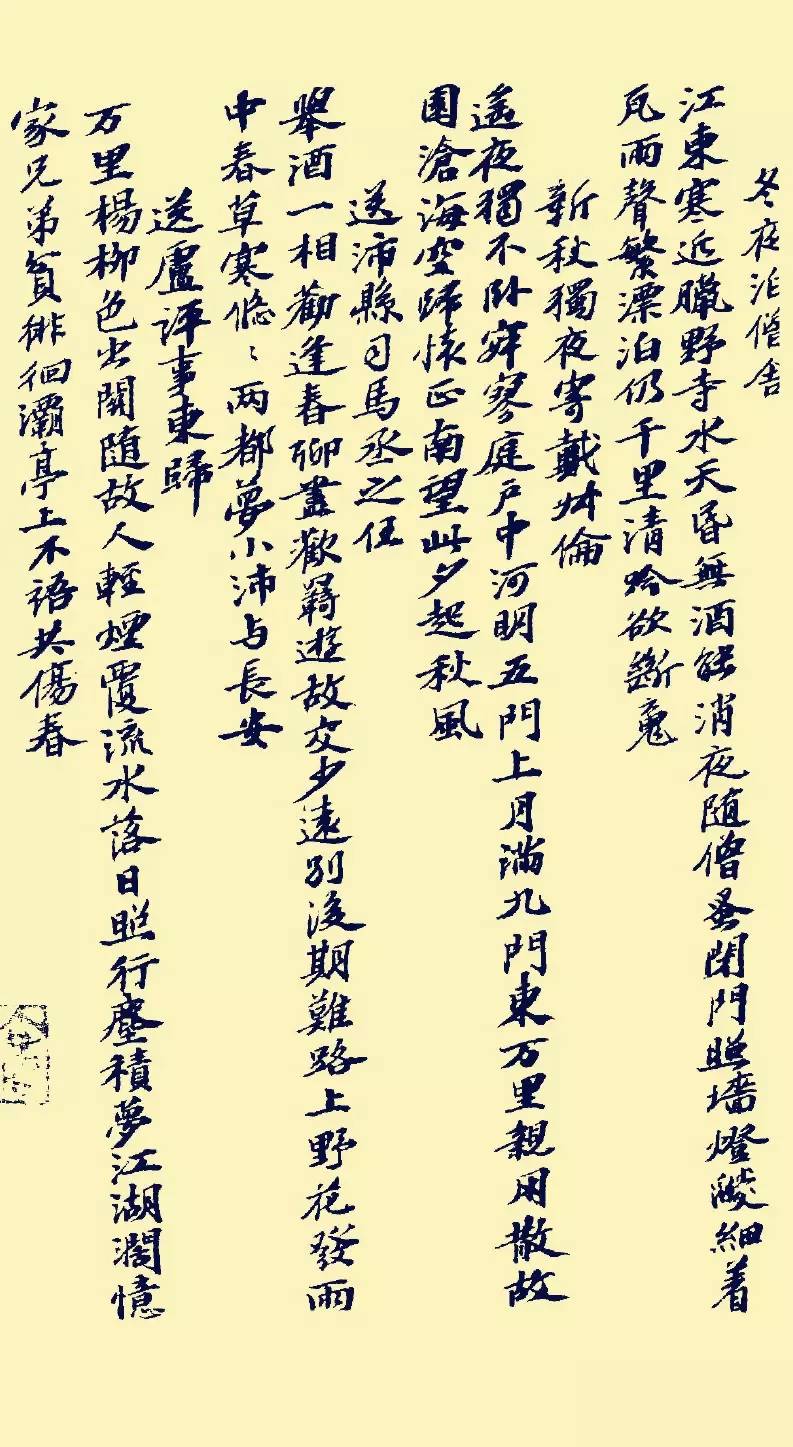 冬夜泊僧舍
江東寒近臘野寺水天昏無酒能消夜随僧蚤閉門照墻燈㷔細着
瓦雨聲繁漂泊仍千里清吟欲斷魂
新秋獨夜寄戴叔倫
遥夜獨不卧寂寥庭户中河明五門上月滿九門東万里親朋散故
園滄海空歸懷正南望此夕起秋風
送沛縣司馬丞之任
舉酒一相勸逢春聊盡歡羇遊故交少遠别後期難路上野花發雨
中春草寒悠〻两都夢小沛与長安
送盧評事東歸
万里楊柳色出關随故人輕煙覆流水落日照行塵積夢江湖濶憶
家兄弟貧徘徊灞亭上不語共傷春